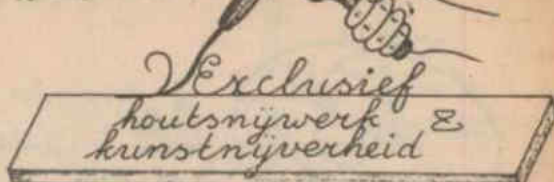 Exclusief
houtsnijwerk &
kunstnijverheid